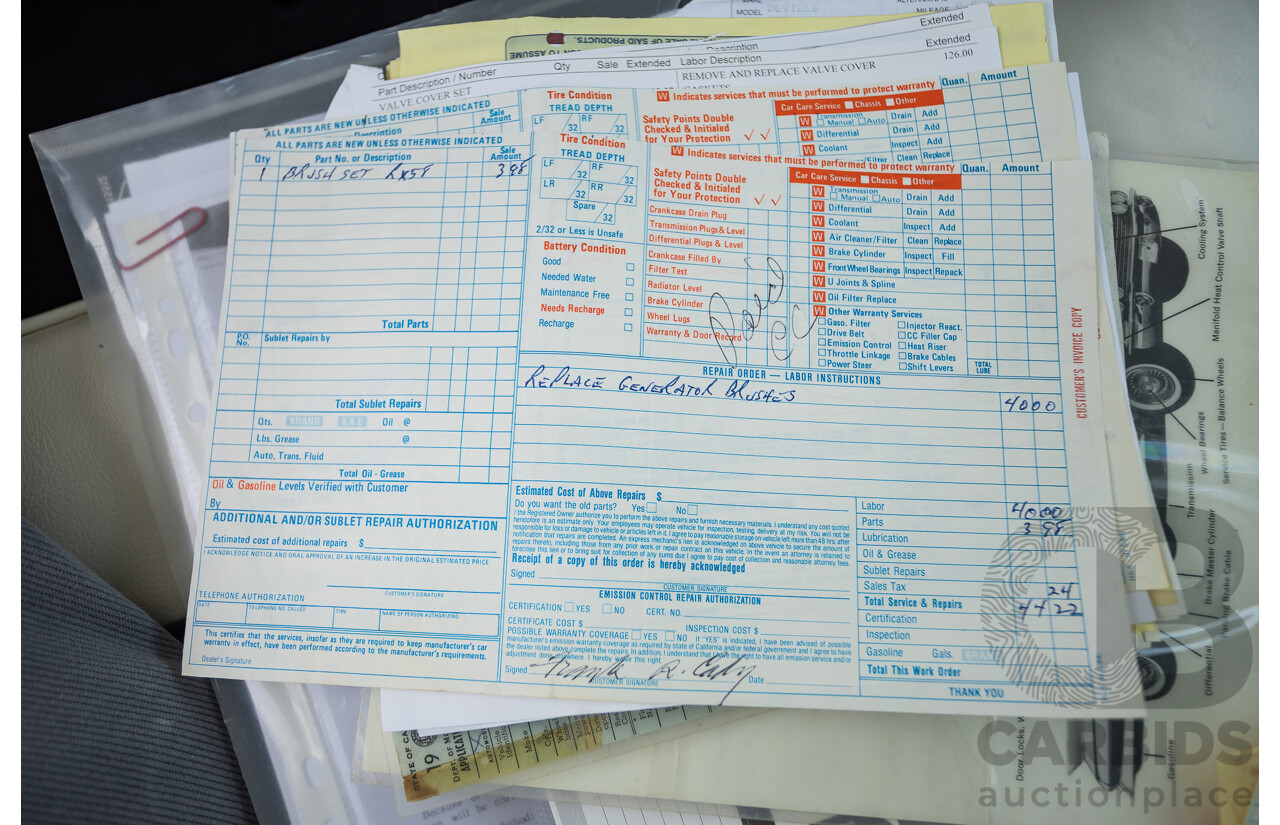 MODEL DEVILLE
MILEAGE
Extended
Labor Description
Extended
Part Description / Number Qty Sale Extended
126.00
REMOVE AND REPLACE VALVE COVER
VALVE COVER SET
ALL PARTS ARE NEW UNLESS OTHERWISE INDICATED
Sale Amount
Tire Condition
TREAD DEPTH
LF /32 RF /32
W Indicates services that must be performed to protect warranty
Quan. Amount
Safety Points Double
Checked & Initialed
for Your Protection
Car Care Service Chassis Other
W Transmission Manual Auto Drain Add
W Differential Drain Add
W Coolant Inspect Add
Clean Replace
ALL PARTS ARE NEW UNLESS OTHERWISE INDICATED
Qty Part No. or Description Sale Amount
1 BRUSH SET RX58 3 98
Total Parts
P.O. No. Sublet Repairs by
Total Sublet Repairs
Qts. BRAND S A E Oil @
Lbs. Grease @
Auto. Trans. Fluid
Total Oil - Grease
Oil & Gasoline Levels Verified with Customer
By
ADDITIONAL AND/OR SUBLET REPAIR AUTHORIZATION
Estimated cost of additional repairs $
I ACKNOWLEDGE NOTICE AND ORAL APPROVAL OF AN INCREASE IN THE ORIGINAL ESTIMATED PRICE.
CUSTOMER'S SIGNATURE
TELEPHONE AUTHORIZATION
DATE TELEPHONE NO. CALLED TIME NAME OF PERSON AUTHORIZING
This certifies that the services, insofar as they are required to keep manufacturer's car
warranty in effect, have been performed according to the manufacturer's requirements.
Dealer's Signature
Tire Condition
TREAD DEPTH
LF /32 RF /32
LR /32 RR /32
Spare /32
2/32 or Less is Unsafe
Battery Condition
Good
Needed Water
Maintenance Free
Needs Recharge
Recharge
W Indicates services that must be performed to protect warranty
Safety Points Double
Checked & Initialed
for Your Protection
Crankcase Drain Plug
Transmission Plugs & Level
Differential Plugs & Level
Crankcase Filled By
Filter Test
Radiator Level
Brake Cylinder
Wheel Lugs
Warranty & Door Record
Paid
Quan. Amount
Car Care Service Chassis Other
W Transmission Manual Auto Drain Add
W Differential Drain Add
W Coolant Inspect Add
W Air Cleaner/Filter Clean Replace
W Brake Cylinder Inspect Fill
W Front Wheel Bearings Inspect Repack
W U Joints & Spline
W Oil Filter Replace
W Other Warranty Services
Gaso. Filter Injector React.
Drive Belt CC Filler Cap
Emission Control Heat Riser
Throttle Linkage Brake Cables
Power Steer Shift Levers
TOTAL LUBE
REPAIR ORDER — LABOR INSTRUCTIONS
REPLACE GENERATOR BRUSHES 40 00
Estimated Cost of Above Repairs $
Do you want the old parts? Yes No
I the Registered Owner authorize you to perform the above repairs and furnish necessary materials. I understand any cost quoted
heretofore is an estimate only. Your employees may operate vehicle for inspection, testing, delivery at my risk. You will not be
responsible for loss or damage to vehicle or articles left in it. I agree to pay reasonable storage on vehicle left more than 48 hrs. after
notification that repairs are completed. An express mechanic's lien is acknowledged on above vehicle to secure the amount of
repairs thereto, including those from any prior work or repair contract on this vehicle. In the event an attorney is retained to
foreclose this lien or to bring suit for collection of any sums due I agree to pay cost of collection and reasonable attorney fees.
Receipt of a copy of this order is hereby acknowledged
Signed
CUSTOMER SIGNATURE
EMISSION CONTROL REPAIR AUTHORIZATION
CERTIFICATION YES NO CERT. NO.
CERTIFICATE COST $ INSPECTION COST $
POSSIBLE WARRANTY COVERAGE YES NO If "YES" is indicated, I have been advised of possible
manufacturer's emission warranty coverage as required by state of California and/or federal government and I agree to have
the dealer listed above complete the repairs. In addition, I understand that I have the right to have all emission service and/or
adjustment done elsewhere. I hereby waive this right.
Signed Date
CUSTOMER SIGNATURE
Labor 40 00
Parts 3 98
Lubrication
Oil & Grease
Sublet Repairs
Sales Tax 24
Total Service & Repairs 44 22
Certification
Inspection
Gasoline Gals.
Total This Work Order
THANK YOU
CUSTOMER'S INVOICE COPY
Cooling System
Manifold Heat Control Valve Shaft
Service Tires—Balance Wheels
Wheel Bearings
Transmission
Brake Master Cylinder
Differential
Gasoline
STATE OF CA
19
DEPT. OF MO
APPLICA
CARBIDS
auctionplace